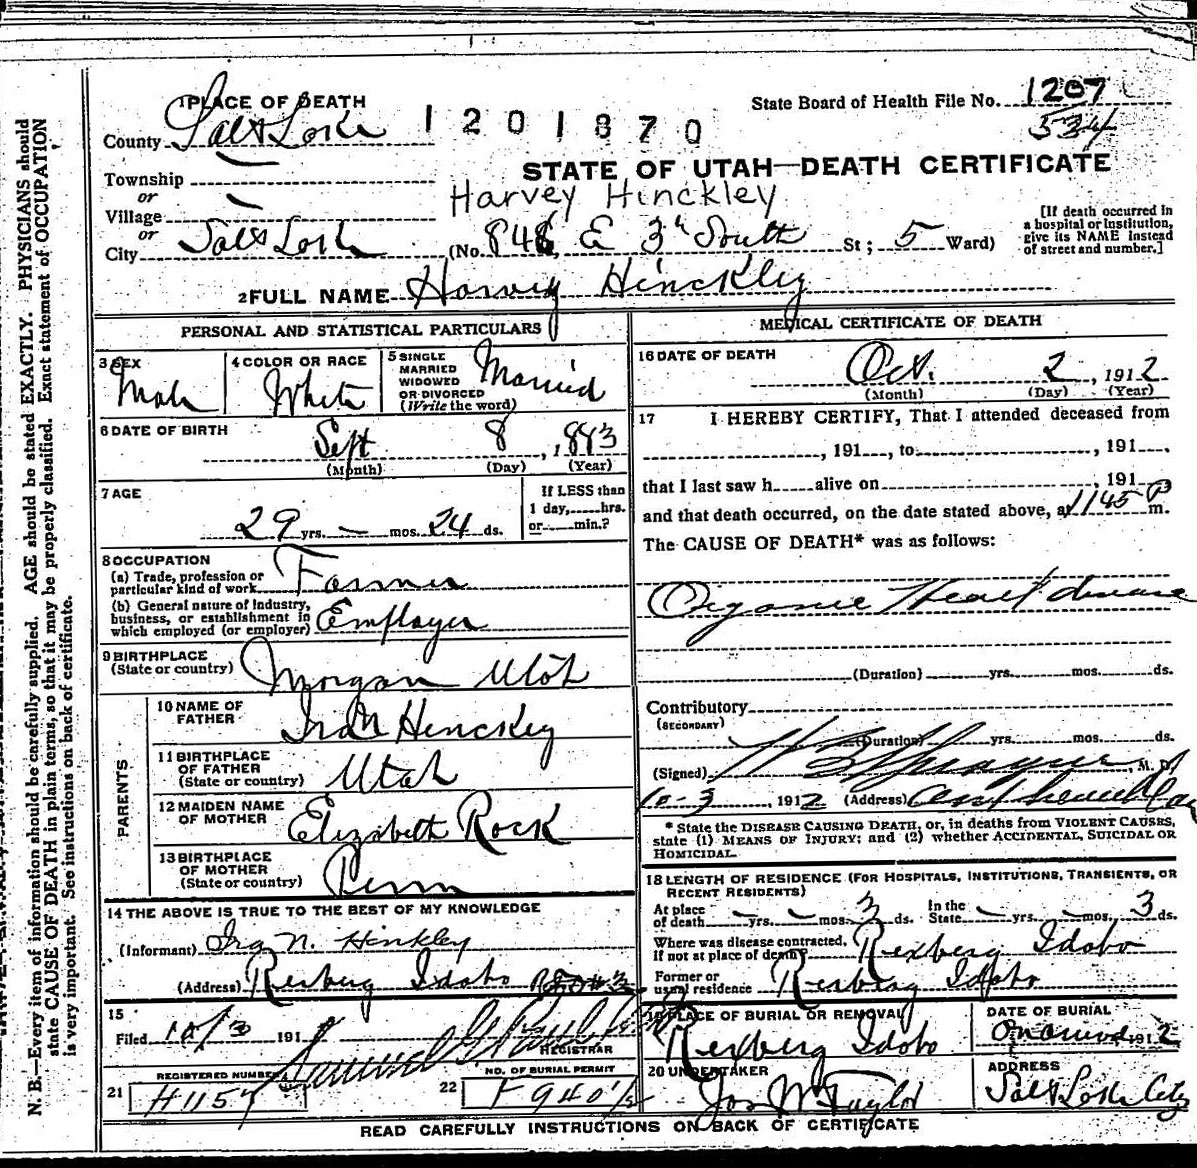 1 PLACE OF DEATH
County Salt Lake
1201870
State Board of Health File No. 1207
534
STATE OF UTAH—DEATH CERTIFICATE
Township
or
Village
or
City Salt Lake
Harvey Hinckley
(No. 846 E 3rd South St; 5 Ward)
[If death occurred in
a hospital or institution,
give its NAME instead
of street and number.]
2 FULL NAME Harvey Hinckley
PERSONAL AND STATISTICAL PARTICULARS
3 SEX Male
4 COLOR OR RACE White
5 SINGLE
MARRIED
WIDOWED
OR DIVORCED
(Write the word) Married
6 DATE OF BIRTH
Sept 8, 1883
(Month) (Day) (Year)
7 AGE
29 yrs. — mos. 24 ds.
If LESS than
1 day,.....hrs.
or.....min.?
8 OCCUPATION
(a) Trade, profession or
particular kind of work Farmer
(b) General nature of industry,
business, or establishment in
which employed (or employer) Employer
9 BIRTHPLACE
(State or country) Morgan Utah
PARENTS
10 NAME OF
FATHER Ira N Hinckley
11 BIRTHPLACE
OF FATHER
(State or country) Utah
12 MAIDEN NAME
OF MOTHER Elizabeth Rock
13 BIRTHPLACE
OF MOTHER
(State or country) Penn
14 THE ABOVE IS TRUE TO THE BEST OF MY KNOWLEDGE
(Informant) Ira N. Hinkley
(Address) Rexberg Idaho
15
Filed 10/3 191
REGISTRAR
REGISTERED NUMBER
21 H1157
NO. OF BURIAL PERMIT
22 F 940 1/2
MEDICAL CERTIFICATE OF DEATH
16 DATE OF DEATH
Oct. 2, 1912
(Month) (Day) (Year)
17 I HEREBY CERTIFY, That I attended deceased from
, 191 , to , 191 ,
that I last saw h alive on , 191
and that death occurred, on the date stated above, at 1145 P m.
The CAUSE OF DEATH* was as follows:
Organic Heart disease
(Duration) yrs. mos. ds.
Contributory
(SECONDARY)
(Duration) yrs. mos. ds.
(Signed) , M. D.
10-3, 1912 (Address)
* State the DISEASE CAUSING DEATH, or, in deaths from VIOLENT CAUSES,
state (1) MEANS OF INJURY; and (2) whether ACCIDENTAL, SUICIDAL OR
HOMICIDAL.
18 LENGTH OF RESIDENCE (FOR HOSPITALS, INSTITUTIONS, TRANSIENTS, OR
RECENT RESIDENTS)
At place
of death — yrs. — mos. 3 ds. In the
State — yrs. — mos. 3 ds.
Where was disease contracted,
if not at place of death? Rexberg Idaho
Former or
usual residence Rexberg Idaho
19 PLACE OF BURIAL OR REMOVAL
Rexberg Idaho
DATE OF BURIAL
1912
20 UNDERTAKER
Jos Wm Taylor
ADDRESS
Salt Lake City
READ CAREFULLY INSTRUCTIONS ON BACK OF CERTIFICATE
N. B.—Every item of information should be carefully supplied. AGE should be stated EXACTLY. PHYSICIANS should
state CAUSE OF DEATH in plain terms, so that it may be properly classified. Exact statement of OCCUPATION
is very important. See instructions on back of certificate.